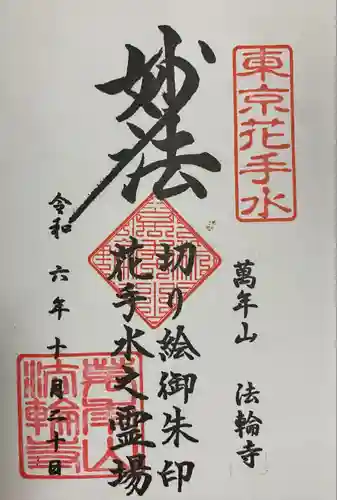 東京花手水
妙法
萬年山 法輪寺
切り絵御朱印
花手水之霊場
令和 六年 十月二十日
萬年山
法輪寺